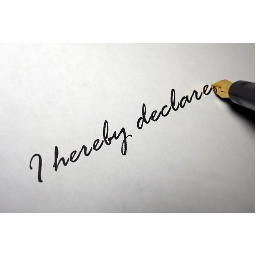 I hereby declare